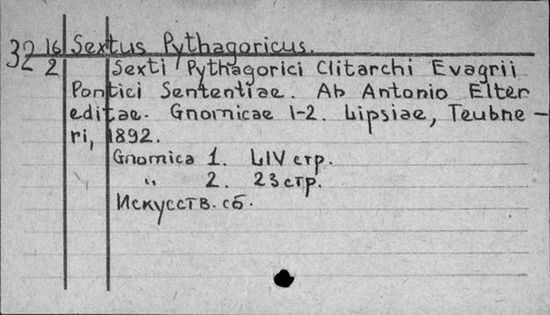 32 16 Sextus Pythagoricus.
2 Sexti Pythagorici Clitarchi Evagrii
Pontici Sententiae. Ab Antonio Elter
editae. Gnomicae 1-2. Lipsiae, Teubne-
ri, 1892.
Gnomica 1. LIV стр.
" 2. 23 стр.
Искусств. сб.